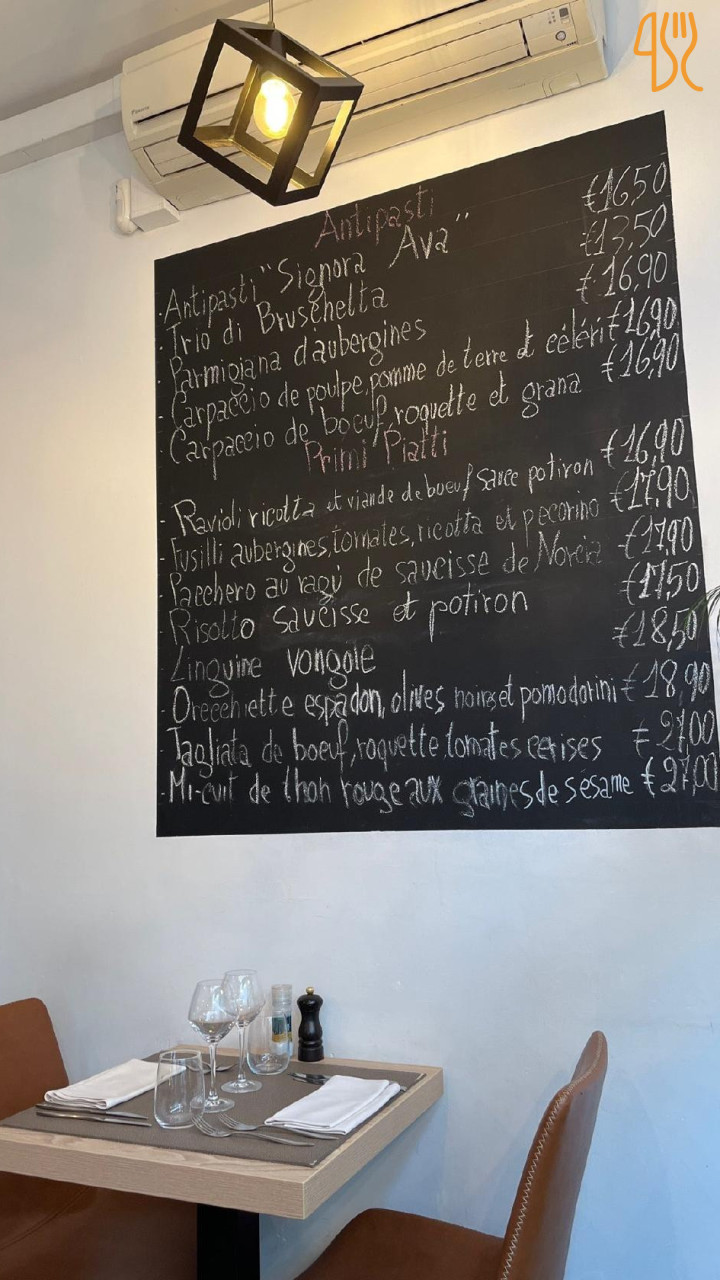 Antipasti
- Antipasti "Signora Ava" €16,50
- Trio di Bruschetta €13,50
- Parmigiana d'aubergines €16,90
- Carpaccio de poulpe, pomme de terre et céléri €16,90
- Carpaccio de boeuf, roquette et grana €16,90
Primi Piatti
- Ravioli ricotta et viande de boeuf sauce potiron €16,90
- Fusilli aubergines, tomates, ricotta et pecorino €17,90
- Pacchero au ragù de saucisse de Norcia €17,90
- Risotto saucisse et potiron €17,50
- Linguine vongole €18,50
- Orecchiette espadon, olives noirs et pomodorini €18,90
- Tagliata de boeuf, roquette, tomates cerises €27,00
- Mi-cuit de thon rouge aux graines de sésame €27,00